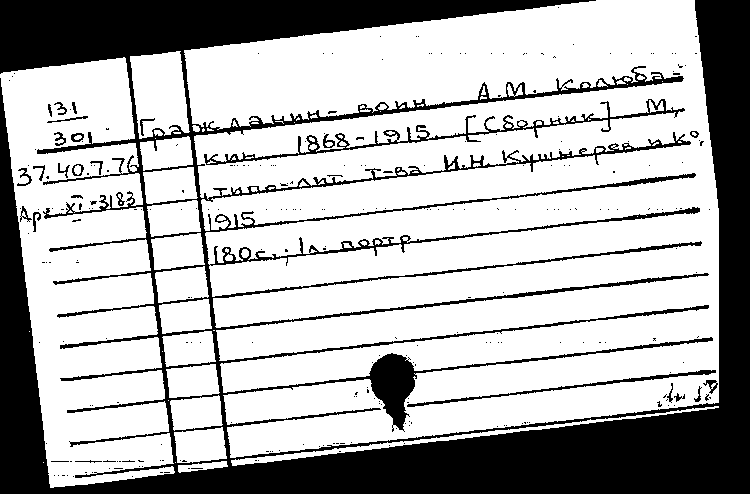 131
301
37.40.7.76
Арх XI-3183
Гражданин-воин А.М. Колюба-
кин 1868-1915. [Сборник] М.,
типо-лит. т-ва И.Н. Кушнерев и К°,
1915
180с.; 1л. портр.